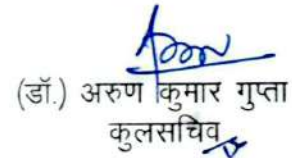 (डॉ.) अरुण कुमार गुप्ता
कुलसचिव